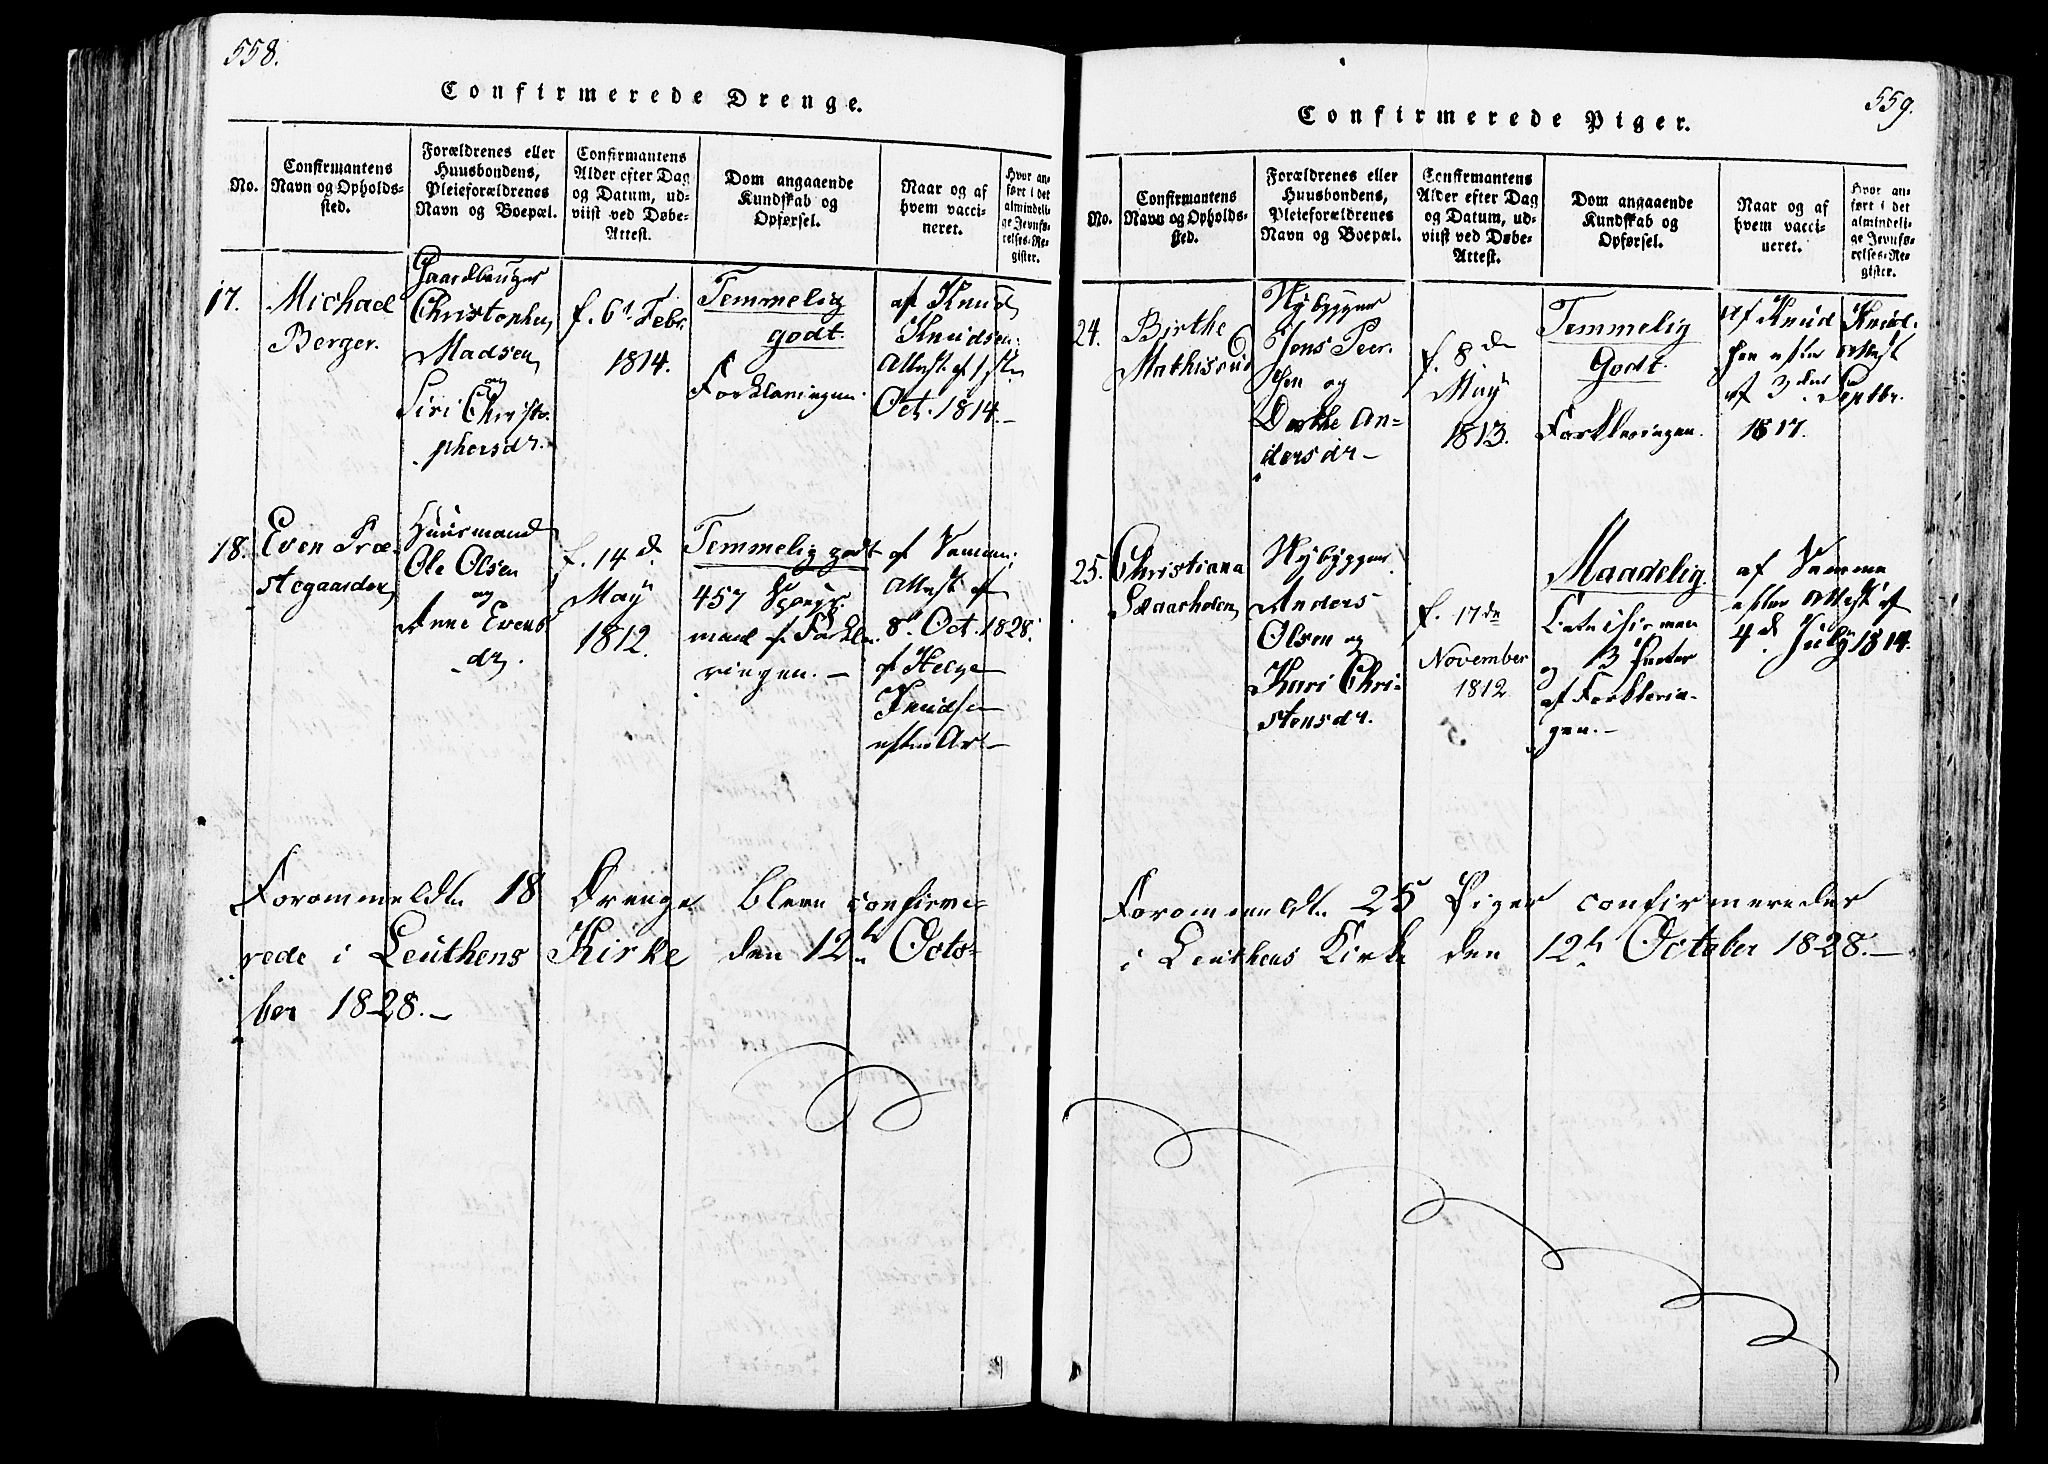 558.
Confirmerede Drenge.
No.
Confirmantens
Navn og Opholds-
sted.
Forældrenes eller
Huusbondens,
Pleieforældrenes
Navn og Boepæl.
Confirmantens
Alder efter Dag
og Datum, ud-
viist ved Døbe-
Attest.
Dom angaaende
Kundskab og
Opførsel.
Naar og af
hvem vacci-
neret.
Hvor an-
ført i det
almindeli-
ge Jevnfø-
relses-Re-
gister.
17.
Michael
Berger.
Gaardbruger
Christopher
Madsen
og
Siri Christo-
phersdr.
f. 6t Febr.
1814.
Temmelig
godt.
Forklaringen.
af Knud
Knudsen.
Attest af
Oct. 1814.-
18.
Even Præ-
stegaarden
Huusmand
Ole Olsen
og
Anne Evens
dr.
f. 14d
May
1812.
Temmelig godt
457 Spørgs-
maal af Forkla-
ringen.-
af Samme
Attest af
8d Oct. 1828.
af Helge
Knudsen
efter At-
Forommeldte 18 Drenge bleve confirme-
rede i Leuthens Kirke den 12te Octo-
ber 1828.-
559.
Confirmerede Piger.
No.
Confirmantens
Navn og Opholds-
sted.
Forældrenes eller
Huusbondens,
Pleieforældrenes
Navn og Boepæl.
Confirmantens
Alder efter Dag
og Datum, ud-
viist ved Døbe-
Attest.
Dom angaaende
Kundskab og
Opførsel.
Naar og af
hvem vacci-
neret.
Hvor an-
ført i det
almindeli-
ge Jevnfø-
relses-Re-
gister.
24.
Birthe
Mathisrud
Nybygger
Jens Peer-
sen og
Dorthe An-
dersdr-
f. 8de
May
1813.
Temmelig
Godt.
Forklaringen.
af Knud Knud-
sen efter Attest
af 3die Septbr.
1817.
25.
Christiana
Skaarholen
Nybygger
Anders
Olsen og
Kari Chri-
stensdr.
f. 17de
November
1812
Maadelig.
Catechismen
og 13 Parter
af Forklarin-
gen.-
af Samme
efter Attest af
4d July 1814.
Forommeldte 25 Piger confirmereder
i Leuthens Kirke den 12te October 1828.-